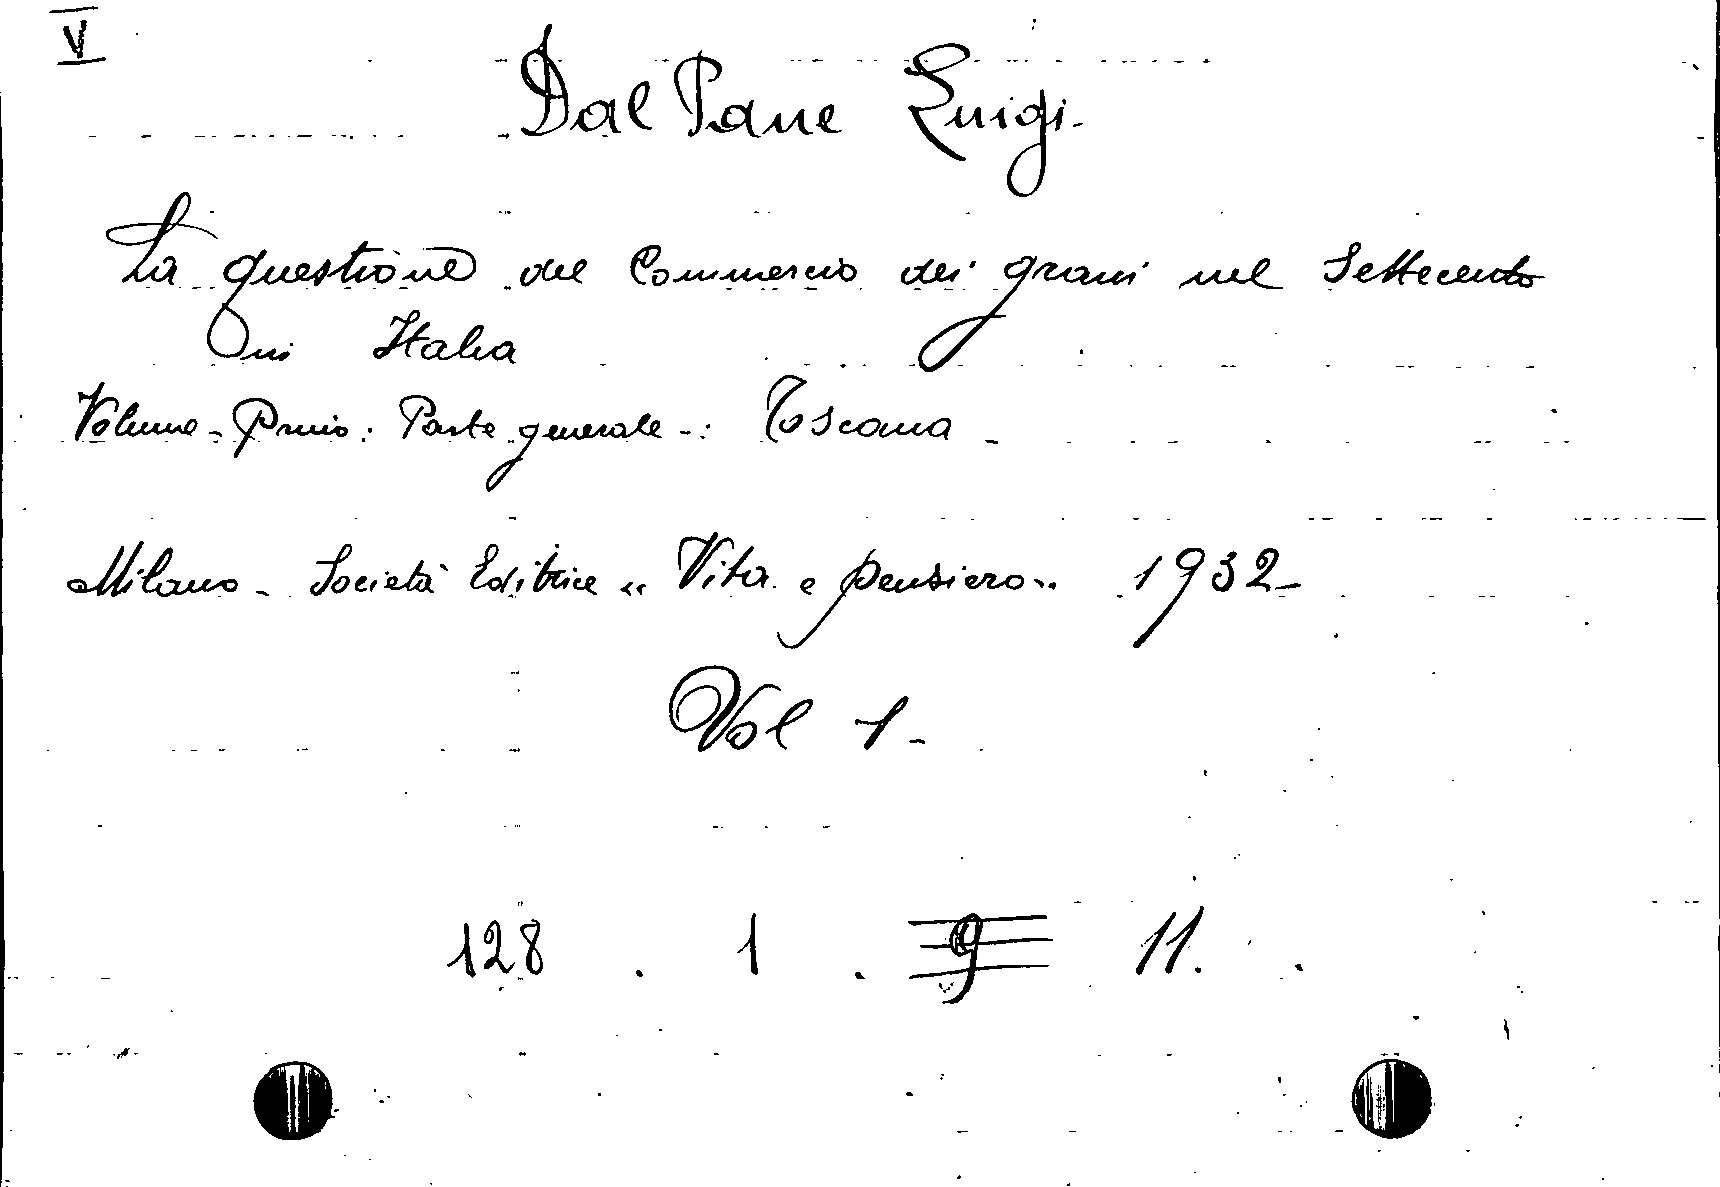 V
Dal Pane Luigi.
La questione del Commercio dei grani nel Settecento
in Italia
Volume - Primo : Parte generale - : Toscana -
Milano - Società Editrice " Vita e pensiero " 1932 -
Vol 1 -
128 . 1 . 9 11 . .